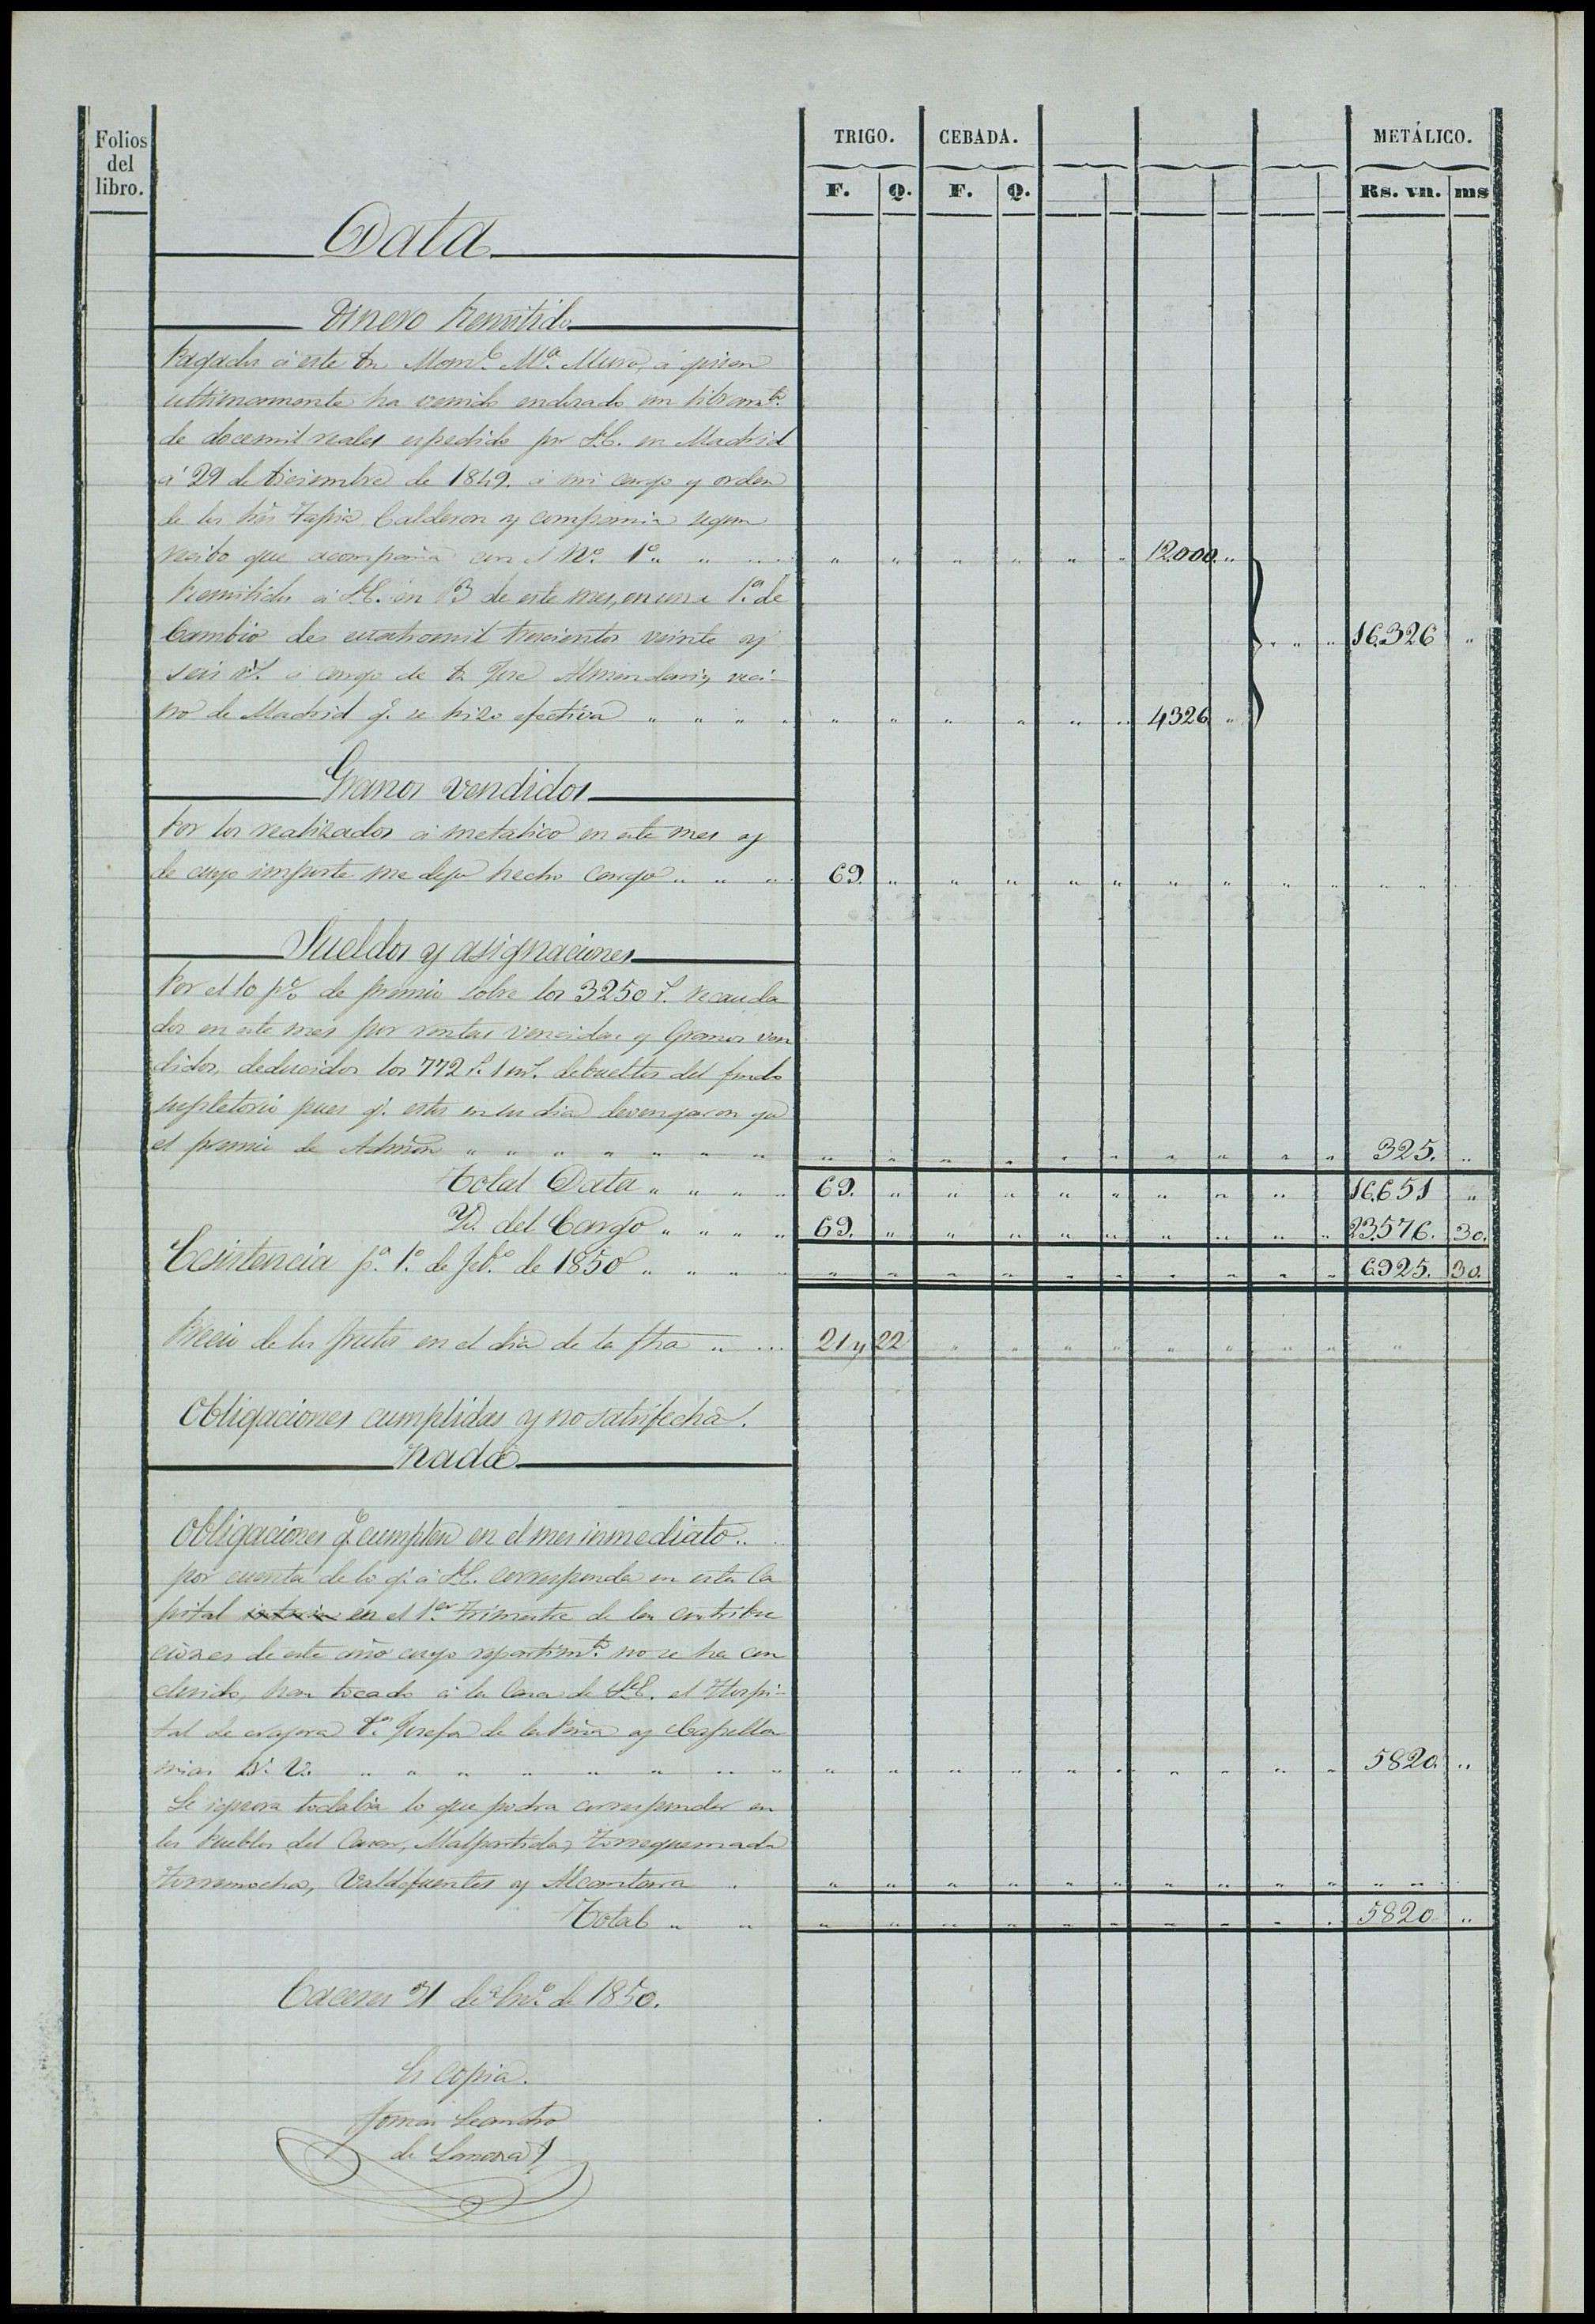 Folios del libro.
TRIGO. CEBADA. METÁLICO.
F. Q. F. Q. Rs. vn. ms
Data
Dinero Remitido
Pagados á este Dn Man.l Ma. Muro, á quien
ultimamente ha venido endosado un libram.to
de docemil reales espedido por S.E. en Madrid
á 29 de Diciembre de 1849. á mi cargo y orden
de los Sres Tapia Calderon y compania segun
recibo que acompaña con el No. 1o " " " " " " " " 12000 "
Remitidos á S.E. en 13 de este mes, en una 1a. de
Cambio de cuatromil trescientos veinte y 16.326 "
seis rs. á cargo de Dn Jose Almendariz, veci-
no de Madrid q.e se hizo efectiva " " " " " " " " " 4326 "
Granos vendidos
Por los realizados á metalico en este mes y
de cuyo importe me dejo hecho cargo " " " 69. " " " " " " " " " " "
Sueldos y asignaciones
Por el 10 p% de premio sobre los 3250 rs. recauda
dos en este mes por rentas vencidas y Granos ven
didos, deducidos los 772 rs. 1 ms. debueltos del fondo
supletorio pues q.e estos en su dia devengaron ya
el premio de Admon " " " " " " " " " " " " " " " 325. "
Total Data " " " " 69. " " " " " " " " 16.651 "
Yd. del Cargo " " " " 69. " " " " " " " " " 23.576. 30.
Existencia p.a 1o. de Feb.o de 1850 " " " " " " " " " " " " " " 6.925. 30.
Precio de los frutos en el dia de la fha " " 21 y 22 " " " " " " " " "
Obligaciones cumplidas y no satisfechas.
Nada
Obligaciones q.e cumplen en el mes inmediato "
por cuenta de lo q.e á S.E. corresponde en esta Ca
pital en el 1er. trimestre de las contribu
ciones de este año cuyo repartim.to no se ha con
cluido, han tocado á la Casa de S.E. el Hospi-
tal de D.a Josefa de la Peña y Capella
nias " " " " " " " " " " " " " " " " " " 5820. "
Se ignora todabia lo que podra corresponder en
los Pueblos del Casar, Malpartida, Torrequemada
Torremocha, Valdefuentes y Alcantara " " " " " " " " " " " " "
Total " " " " " " " " " " " " 5820 "
Caceres 31 de En.o de 1850.
Es copia.
Tomas Leandro
de